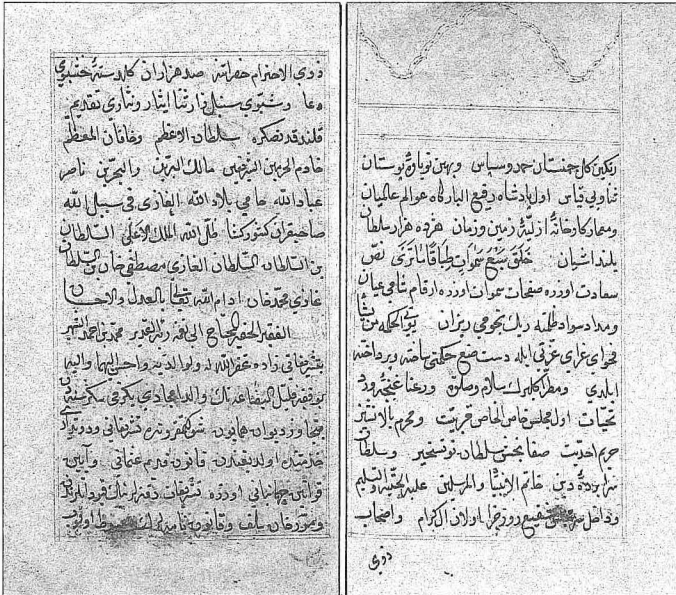 رنكين كل جمنستان حمد وسپاس وبهين نوباوۀ بوستان
ثناوبي قياس اول پادشاه رفيع البارگاه عوالم عالميان
ومعمار كارخانۀ ازليۀ زمين وزمان هروه هزار سلطان
بلند اشيان خَلَقَ سَبْعَ سَمٰوَاتٍ طِبَاقًا مَاتَرٰى نص
سعادت اوزره صفحات سموات اوزره ارقام شامى عيان
ومداد سواد ظلمه ريك نجومى ريزان يؤتى الحكمه من يشأ
فحواى غراى عزتى ايله دست صنع حكمتى ساخته وپرداخته
ايلدى ومطرا كلبرك سلام وصلوة ورعنا غنچۀ ورد
تحيات اول مجلس خاص الخاص قربيت ومحرم بالانشين
حريم احديت صفا بخش سلطان نوتسخير وسلطان
سراپردۀ دين خاتم الانبيا والمرسلين عليه التحية والتسليم
وداخل شفيع روز جزا اولان اكرام واصحاب
ذوى
ذوى الاحترام حضراتنه صد هزاران كلدستۀ خشبوي
دعا وشبوي سنبل زار ثنا ايثار ونثارى تقديم
قلندقدنصكره سلطان الاعظم وخاقان المعظم
خادم الحرمين الشريفين مالك البرين والبحرين ناصر
عباد الله حامي بلاد الله الغازى فى سبيل الله
صاحبقران كشوركشا ظل الله الملك الاعلى السلطان
بن السلطان السلطان الغازى مصطفى خان بن السلطان
غازى محمد خان ادام الله تعالى بالعدل والاحسان
الفقير الحقير المحتاج الى نعمة ربه القدير محمد بن احمد الشهير
بتشريفاتى زاده عفر الله له ولوالديه واحسن اليهما واليه
بو فقير قليل البضاعه نك والد ماجدى يكرمى سكز سنه
ديوان همايون شوكتمقرونده تشريفاتى
خدمتنده اولديغندن قانون قديم عثمانى وآيين
قوانين جهانبانى اوزره تشريفات دفترلرينك
يلف وقانون نامه لرك اولوب